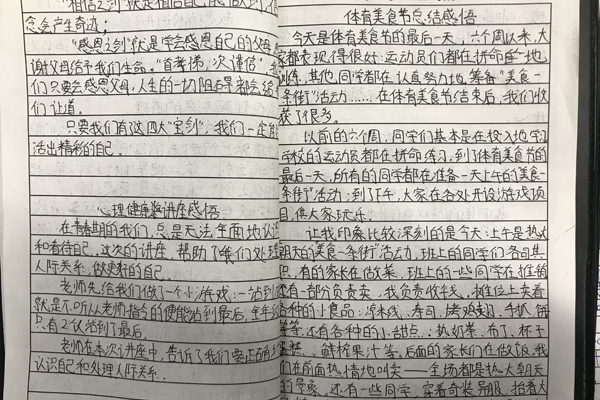 "相信之剑"就是相信自己能做到,信
念会产生奇迹;
"感恩之剑"就是学会感恩自己的父母,感
谢父母给予我们生命。"首孝悌,次谨信",
们只要去感恩父母,人生的一切阻碍都会给
们让道。
只要我们有这四大"宝剑",我们一定能
活出精彩的自己。
心理健康讲座感悟
在青春期的我们,总是无法全面地认识
和看待自己,这次的讲座,帮助了我们处理
人际关系,做更好的自己。
老师先给我们做了一个小游戏:一站到
就是不听从老师指令的便能站到最后,全年级
只有2位站到了最后。
老师在本次讲座中,告诉了我们要正确地
认识自己和处理人际关系。
体育美食节总结感悟
今天是体育美食节的最后一天,六个周以来,大
家都表现得很好:运动员们都在拼命地
训练,其他同学都在认真努力地筹备"美食一
条街"活动……在体育美食节结束后,我们收
获了很多。
以前的六个周,同学们基本是在投入地学
学校的运动员都在拼命练习,到了体育美食节的
最后一天,所有的同学都在准备一天上午的"美食
一条街"活动;到了下午,大家在各处开设游戏项
目,供大家玩乐。
让我印象比较深刻的是今天上午是热火
朝天的"美食一条街"活动,班上的同学们各司其
职,有的家长在做菜,班上的一些同学在推销
还有一部分负责卖,我负责收钱,摊位上卖着
各种小食品:凉米线、寿司、烤鸡翅、手抓饼
等等,还有各种的小甜点:热奶茶、布丁、杯子
蛋糕、鲜榨果汁等。后面的家长们在做饭,我
们在前面热情地叫卖——全场都是热火朝天
的景象,还有一些同学,穿着奇装异服,拍着大